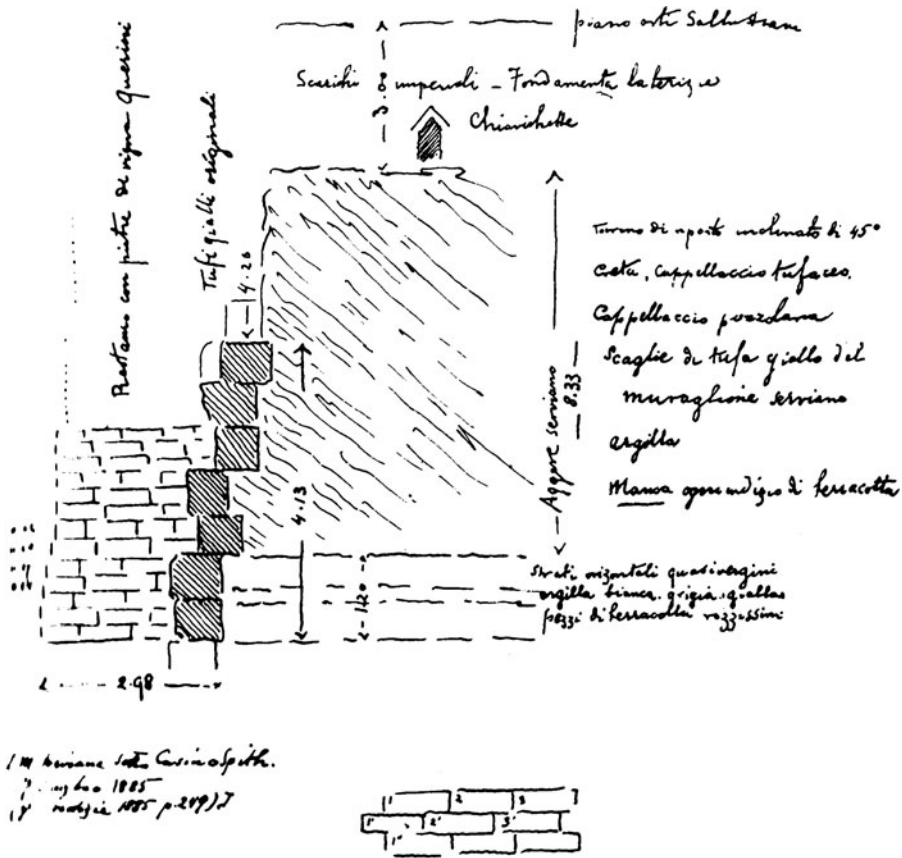 piano orti Sallustiani
Scarichi imperiali - Fondamenta laterizie
Chiavichette
Restauro con pietre di vigna Querini
Tufi gialli originali
4.26
4.13
1.20
2.98
Aggere serviano
8.33
Terreno di riporto inclinato di 45°
Creta, cappellaccio tufaceo.
Cappellaccio pozzolana
Scaglie di tufo giallo del
muraglione serviano
argilla
Manca ogni indizio di terracotta
Strati orizontali quasi vergini
argilla bianca, grigia, gialla
pezzi di terracotta rozzissimi
serviane sotto Casino Spith.
1885
notizie 1885 p. 249)
1 2 3
1' 2' 3'
1"